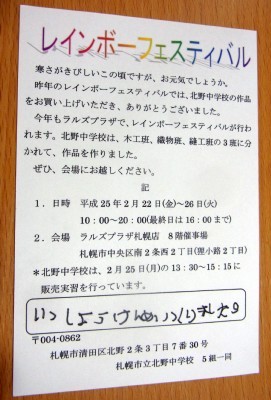 レインボーフェスティバル
寒さがきびしいこの頃ですが、お元気でしょうか。
昨年のレインボーフェスティバルでは、北野中学校の作品
をお買い上げいただき、ありがとうございました。
今年もラルズプラザで、レインボーフェスティバルが行わ
れます。北野中学校は、木工班、織物班、縫工班の3班に分
かれて、作品を作りました。
ぜひ、会場にお越しください。
記
1. 日時 平成25年2月22日(金)~26日(火)
10:00~20:00(最終日は16:00まで)
2. 会場 ラルズプラザ札幌店 8階催事場
札幌市中央区南2条西2丁目(狸小路2丁目)
*北野中学校は、2月25日(月)の13:30~15:15に
販売実習を行っています。
いっしょうけんめいつくりました
〒004-0862
札幌市清田区北野2条3丁目7番30号
札幌市立北野中学校 5組一同